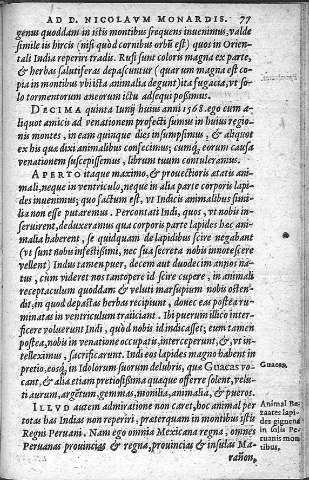 AD D. NICOLAVM MONARDIS. 77
genus quoddam in istis montibus frequens inuenimus, valde
simile iis hircis (nisi quòd cornibus orbi est) quos in Orien-
tali India reperiri tradũt. Rufi sunt coloris magna ex parte,
& herbas salutiferas depascuntur (quarum magna est co-
pia in montibus vbi ista animalia degunt) ita fugacia, vt so-
lo tormentorum aneorum ictu adsequi possimus.
DECIMA quinta Iunij huius anni 1568. ego cum a-
liquot amicis ad venationem profecti sumus in huius regio-
nis montes, in eam quinque dies insumpsimus, & aliquot
ex his quæ dixi animalibus confecimus; cumq́ eorum causa
venationem suscepissemus, librum tuum contuleramus.
APERTO itaque maximo, & prouectioris ætatis ani-
mali, neque in ventriculo, neque in alia parte corporis lapi-
des inuenimus; quo factum est, vt Indicis animalibus simi-
lia non esse putaremus. Percontati Indi, quos, vt nobis in-
seruirent, deduxeramus qua corporis parte lapides hæc ani-
malia haberent, se quidquam de lapidibus scire negabant
(vt sunt nobis infestissimi, nec sua secreta nobis innotescere
vellent) Indus tamen puer, decem aut duodecim annos na-
tus, cum videret nos tantopere id scire cupere, in animali
receptaculum quoddam & veluti marsupium nobis osten-
dit, in quod depastas herbas recipiunt, donec eas postea ru-
minatas in ventriculum traiiciant. Ibi puerum illico inter-
ficere voluerunt Indi, quòd nobis id indicasset; eum tamen
postea, nobis in venatione occupatis, interceperunt, &, vt in-
telleximus, sacrificarunt. Indi eos lapides magno habent in
pretio, eosq́, in Idolorum suorum delubris, quæ Guacas vo-
cant, & alia etiam pretiosissima quæque offerre solent, velu-
ti aurum, argẽtum, gemmas, monilia, animalia, & pueros.
Guacas.
ILLVD autem admiratione non caret, hoc animal per
totas has Indias non reperiri, præterquam in montibus istis
Regni Peruani. Nam ego omnia Mexicana regna, omnes
Peruanas prouincias & regna, prouincias & insulas Ma-
rañon,
Animal Be-
zaares lapi-
des gignens
in solis Pe-
ruanis mon
tibus.